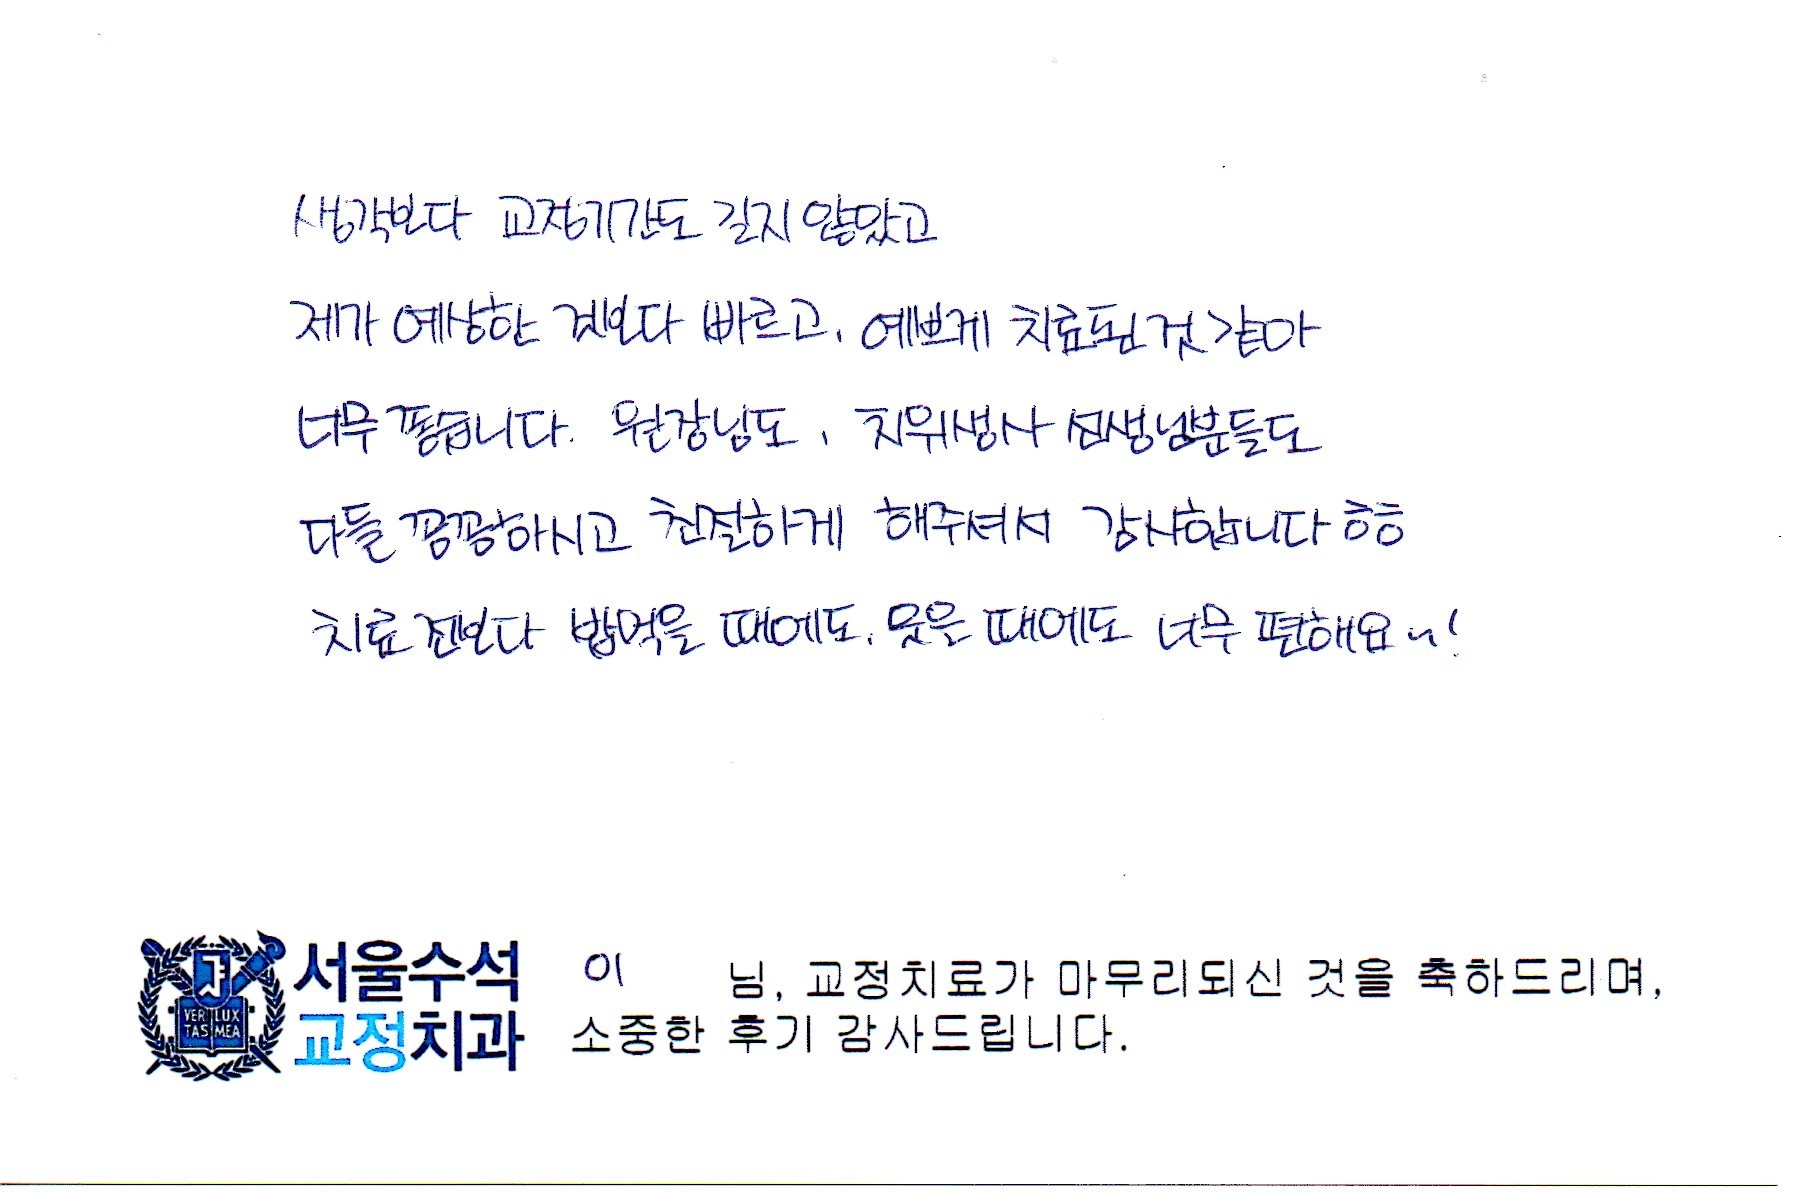 생각보다 교정기간도 길지 않았고
제가 예상한 것보다 빠르고, 예쁘게 치료된 것 같아
너무 좋습니다. 원장님도, 치위생사 선생님분들도
다들 꼼꼼하시고 친절하게 해주셔서 감사합니다 ㅎㅎ
치료 전보다 밥먹을 때에도, 웃을 때에도 너무 편해요 ㅆ!
VERI LUX
TAS MEA
서울수석
교정치과
이 님, 교정치료가 마무리되신 것을 축하드리며,
소중한 후기 감사드립니다.